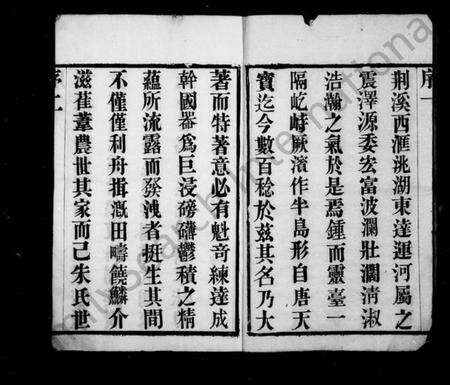 序一
荆溪西滙洮湖東達運河屬之
震澤源委宏富波瀾壯濶清淑
浩瀚之氣於是焉鍾而靈臺一
隔屹峙厥濱作半島形自唐天
寶迄今數百稔於兹其名乃大
著而特著意必有魁竒練達成
幹國器爲巨浸磅礴鬱積之精
蘊所流露而發洩者挺生其間
不僅僅利舟揖溉田疇饒鱗介
滋萑葦農世其家而已朱氏世
序二